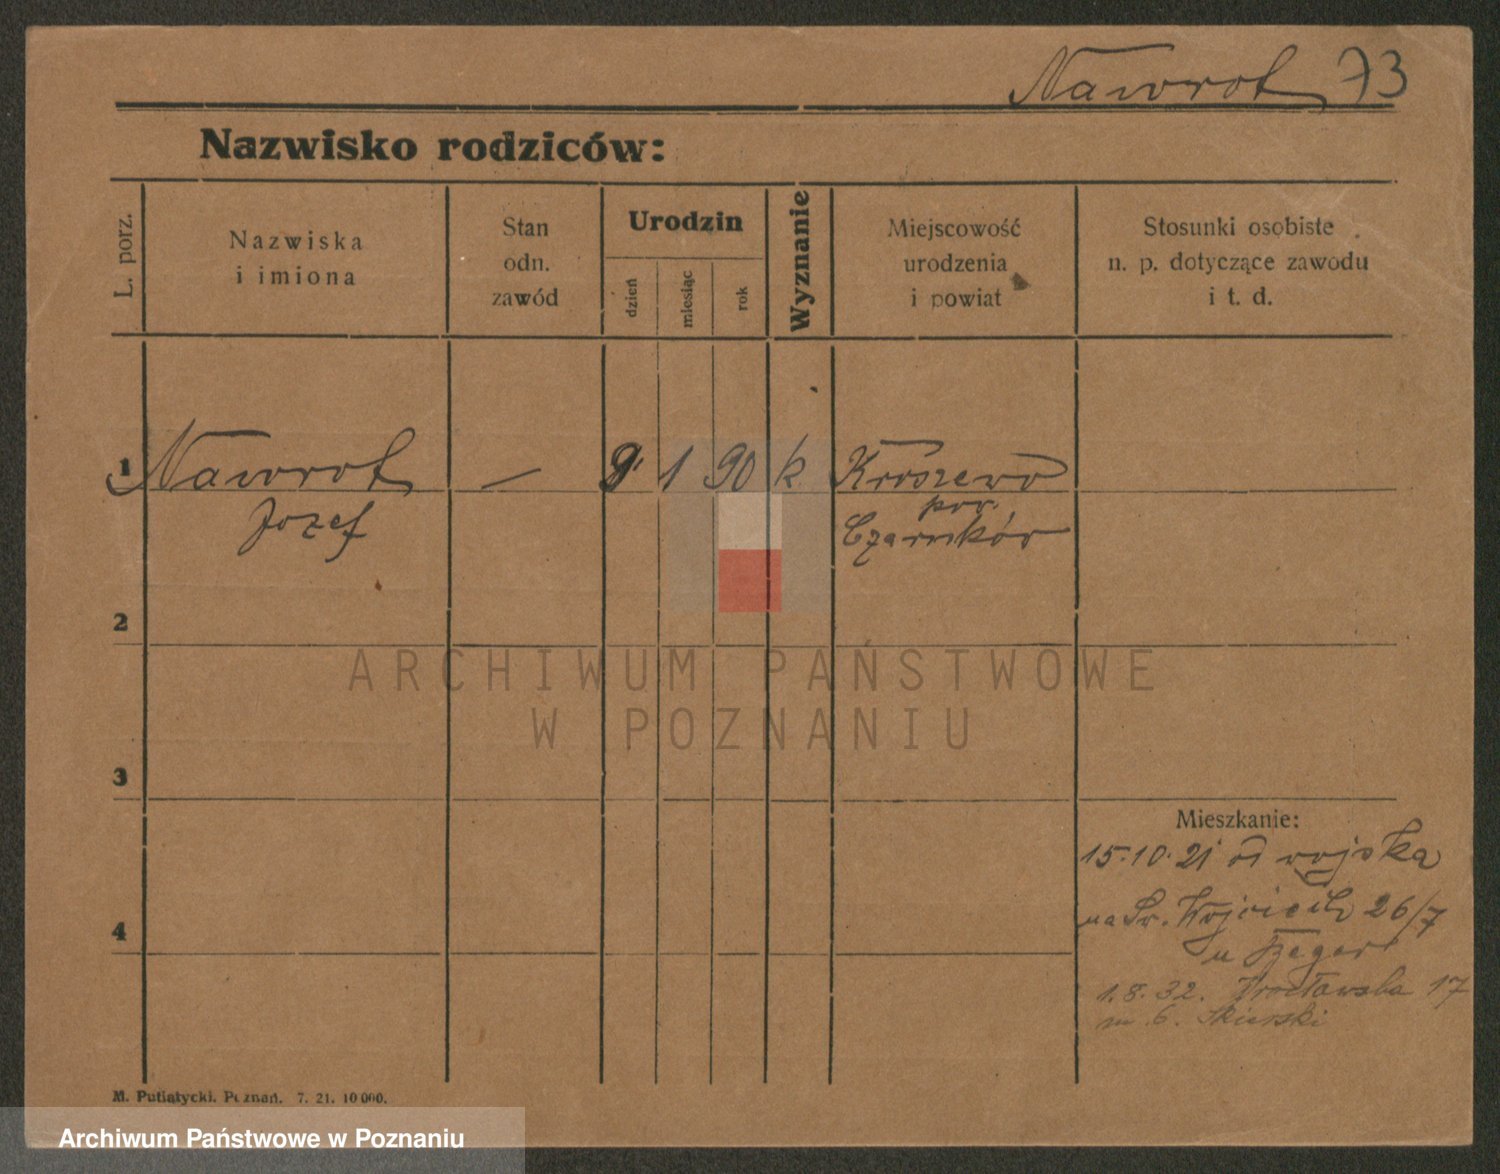 Nawrot 73
Nazwisko rodziców:
L. porz.
Nazwiska
i imiona
Stan
odn.
zawód
Urodzin
dzień
miesiąc
rok
Wyznanie
Miejscowość
urodzenia
i powiat
Stosunki osobiste
n. p. dotyczące zawodu
i t. d.
1 Nawrot — 9 1 90 k Kroszewo
Józef
pow.
Czarnków
2
ARCHIWUM PAŃSTWOWE
W POZNANIU
3
Mieszkanie:
15.10.21 od wojska
na Św. Wojciech 26/7
4
u
1.8.32. Wrocławska 17
m. 6. Skierski
M. Putiatycki. Poznań. 7. 21. 10 000.
Archiwum Państwowe w Poznaniu